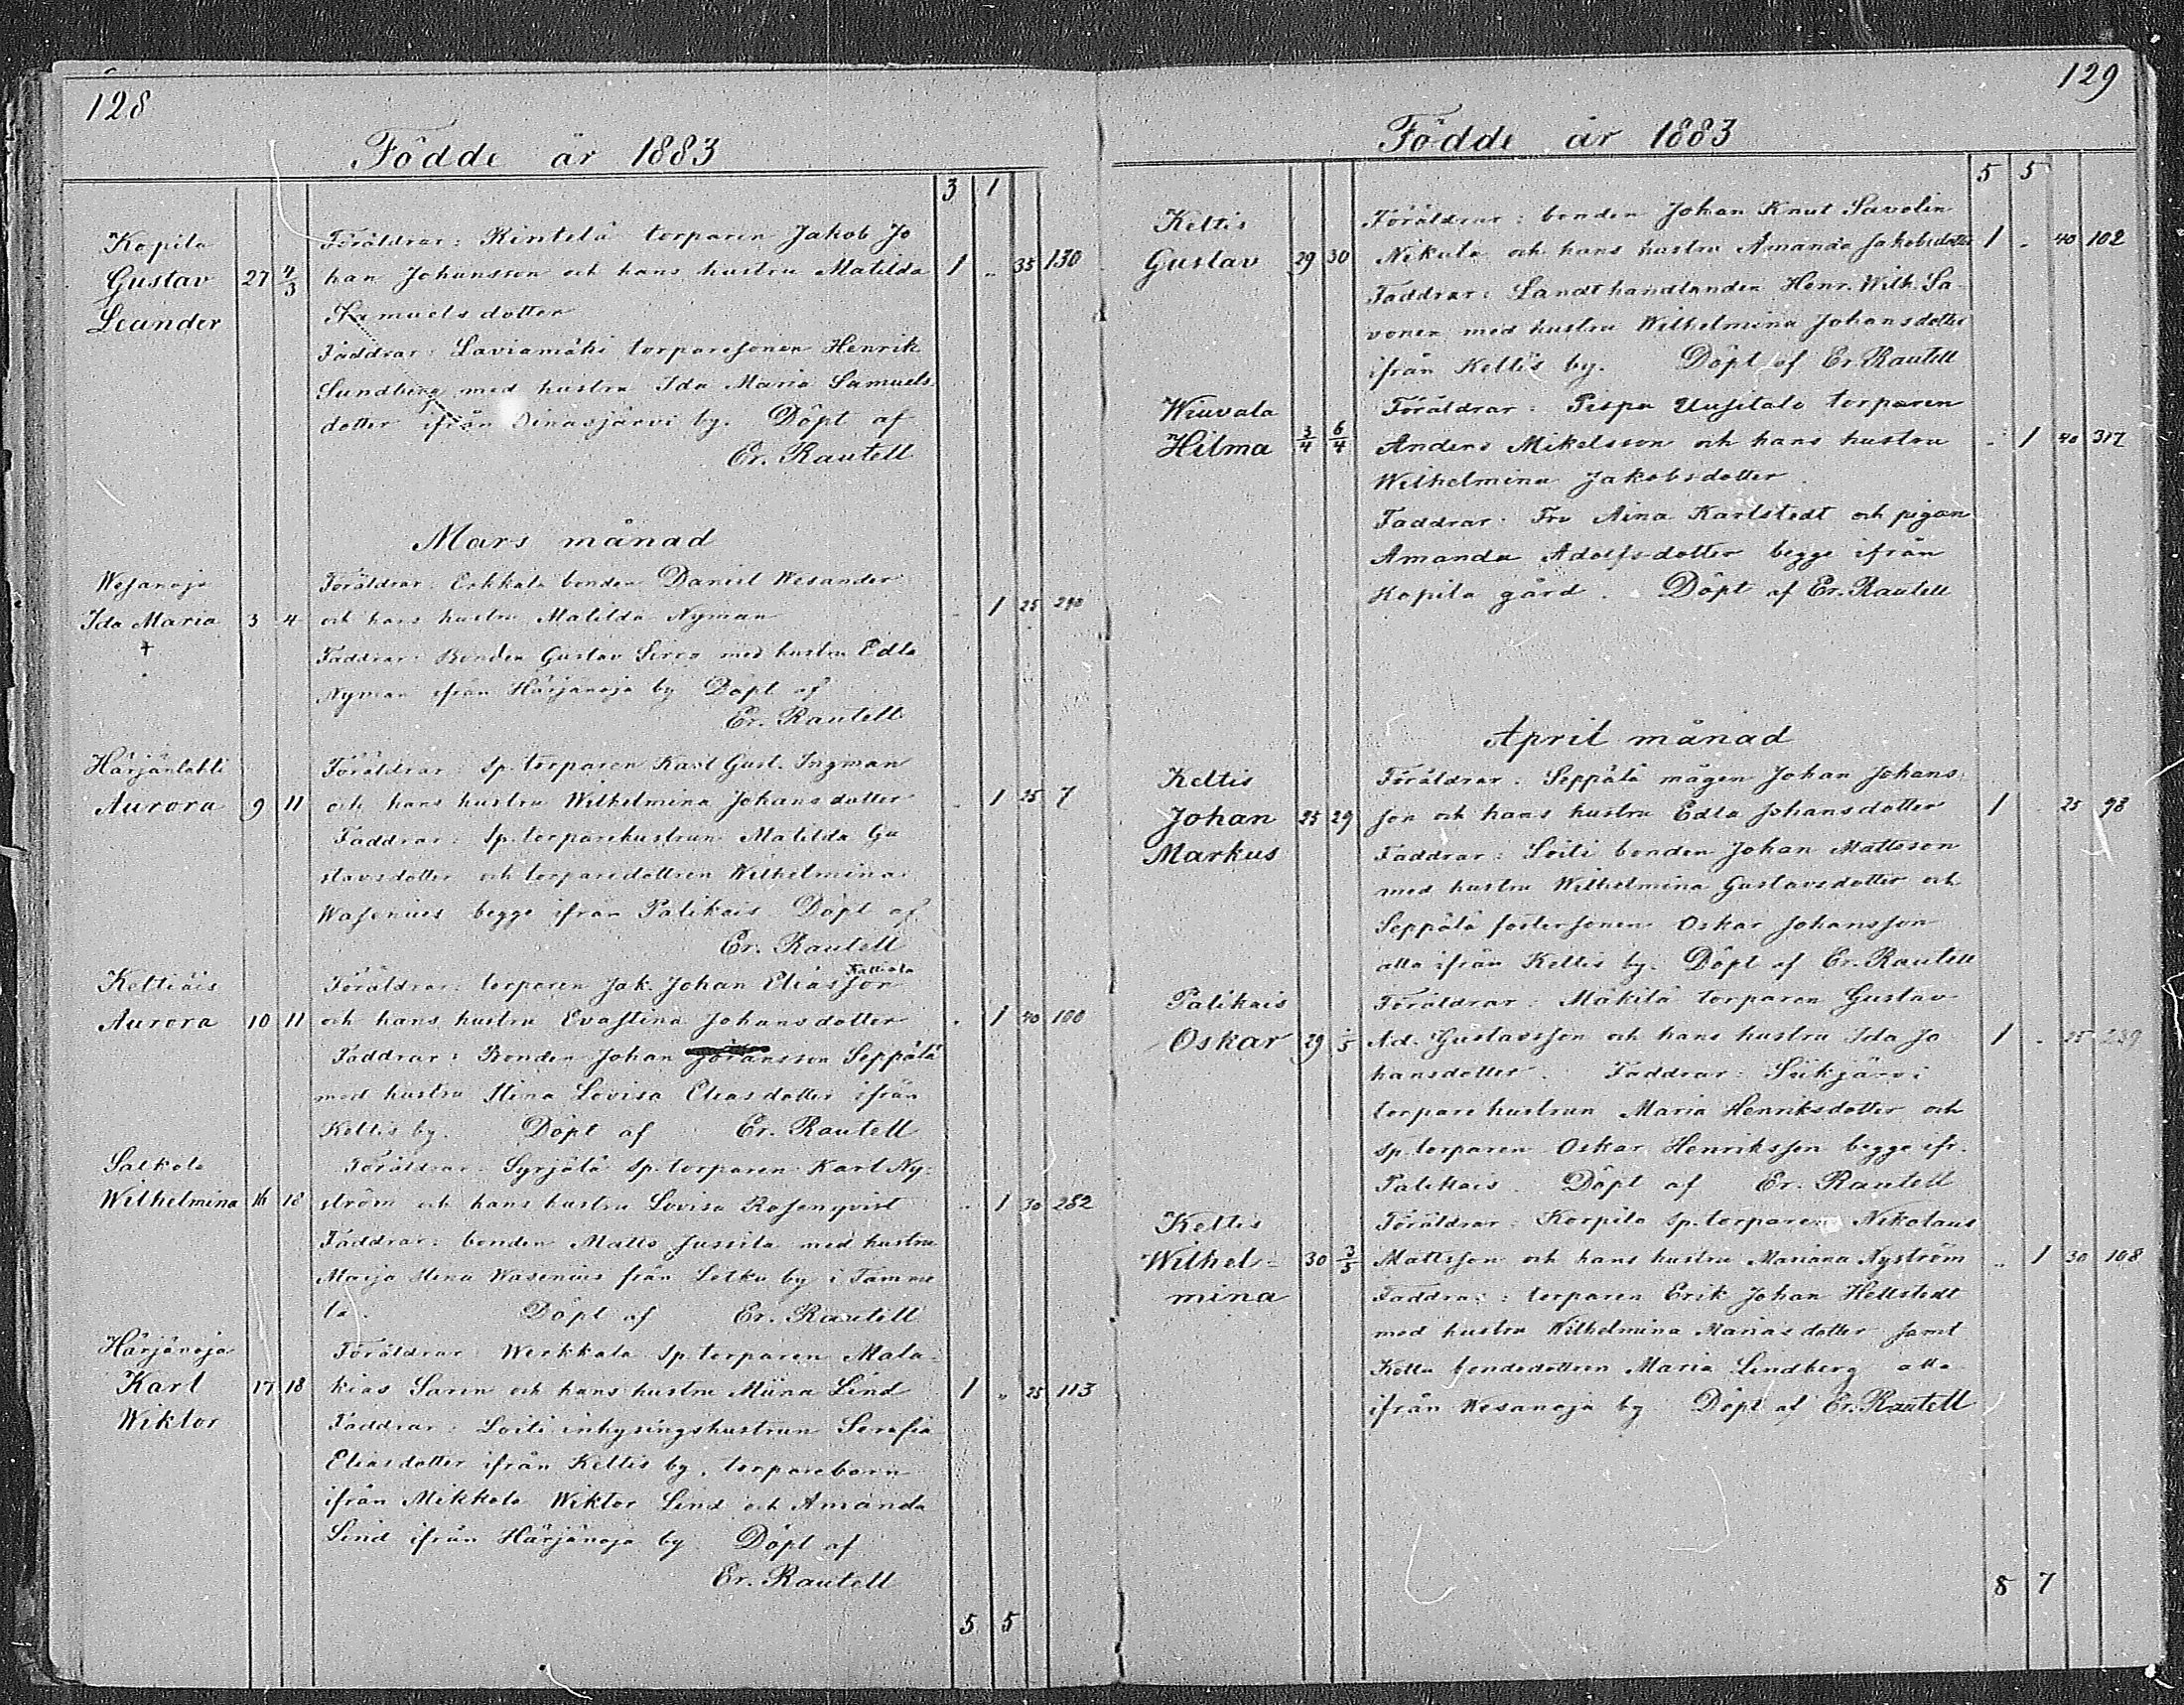 128
Födde år 1883
3 1
Kopila Föräldrar: Rintelä torparen Jakob Jo
Gustav 27 4/3 han Johansson och hans hustru Matilda 1 „ 35 130
Leander Samuelsdotter
Faddrar: Laviamäki torparesonen Henrik
Sundberg med hustru Ida Maria Samuels
dotter ifrån inasjärvi by. Döpt af
Er. Rautell
Mars månad
Wesanoja Föräldrar: Eskkala bonden Daniel Wesander
Ida Maria 3 4 och hans hustru Matilda Nyman „ 1 25 290
+ Faddrar: Bonden Gustav Sirro med hustru Edla
Nyman ifrån Härjänoja by Döpt af
Er. Rautell
Härjänlahti Föräldrar: sp. torparen Karl Gust. Ingman
Aurora 9 11 och hans hustru Wilhelmina Johansdotter „ 1 25 7
Faddrar: Sp. torparehustrun Matilda Gu
stavsdotter och torparedottren Wilhelmina
Wasenius begge ifrån Palikais Döpt af
Er. Rautell
Keltiäis Föräldrar: torparen Jak. Johan Eliasson
Aurora 10 11 och hans hustru Eva Stina Johansdotter „ 1 40 100
Faddrar: Bonden Johan Johansson Seppälä
med hustru Stina Lovisa Eliasdotter ifrån
Keltis by. Döpt af Er. Rautell
Salkola Föräldrar: Syrjälä sp. torparen Karl Ny-
Wilhelmina 16 18 ström och hans hustru Lovisa Rosenqvist „ 1 30 282
Faddrar: bonden Matts Jussila med hustru
Maija Stina Wasenius från Letku by i Tamme
la. Döpt af Er. Rautell
Härjänoja Föräldrar: Werkkala sp. torparen Mala-
Karl 17 18 kias Saren och hans hustru Miina Lind 1 „ 25 113
Wiktor Faddrar: Loiti inhysingshustrun Serafia
Eliasdotter ifrån Keltis by, torparebarn
ifrån Mikkola Wiktor Lind och Amanda
Lind ifrån Härjänoja by. Döpt af
Er. Rautell
5 5
129
Födde år 1883
5 5
Keltis Föräldrar: bonden Johan Knut Savolin
Gustav 29 30 Nikula och hans hustru Amanda Jakobsdotter 1 „ 40 102
Faddrar: Landthandlanden Henr. Wilh. Sa-
vonen med hustru Wilhelmina Johansdotter
ifrån Keltis by. Döpt af Er. Rautell
Wiuvala Föräldrar: Pispa Uusitalo torparen
Hilma 3/4 6/4 Anders Mikelsson och hans hustru „ 1 40 317
Wilhelmina Jakobsdotter.
Faddrar: Fru Aina Karlstedt och pigan
Amanda Adolfsdotter begge ifrån
Kopila gård. Döpt af Er. Rautell
April månad
Keltis Föräldrar: Seppälä mågen Johan Johans
Johan 25 29 son och hans hustru Edla Johansdotter 1 „ 25 98
Markus Faddrar: Loiti bonden Johan Mattsson
med hustru Wilhelmina Gustavsdotter och
Seppälä fostersonen Oskar Johansson
alla ifrån Keltis by. Döpt af Er. Rautell
Palikais Föräldrar: Mäkilä torparen Gustav
Oskar 29 1/5 Ad. Gustavsson och hans hustru Ida Jo 1 „ 25 239
hansdotter. Faddrar: Siikjärvi
torparehustrun Maria Henriksdotter och
sp. torparen Oskar Henriksson begge ifr.
Palikais. Döpt af Er. Rautell
Keltis Föräldrar: Korpila sp. torparen Nikolaus
Wilhel- 30 3/5 Mattsson och hans hustru Mariana Nyström „ 1 30 108
mina Faddrar: torparen Erik Johan Hellstedt
med hustru Wilhelmina Mariasdotter samt
Kellu bondedottren Maria Lindberg alla
ifrån Wesanoja by Döpt af Er. Rautell
8 7